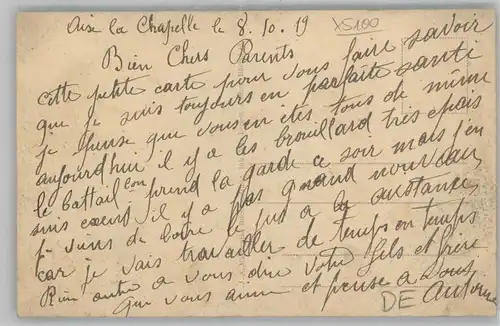 Aix la Chapelle le 8.10.19
X5100
Bien Chers Parents
Cette petite carte pour vous faire savoir
que je suis toujours en parfaite santé
je pense que vous en etes tous de même
aujourd'hui il y a les brouillard très épais
le bataillon prend la garde ce soir mais j'en
suis il y a pas grand nouveau
je viens de boire le jus a la
car je vais travailler de temps en temps
Rien autre a vous dire votre fils et frère
qui vous aime et pense a vous
DE Antoine